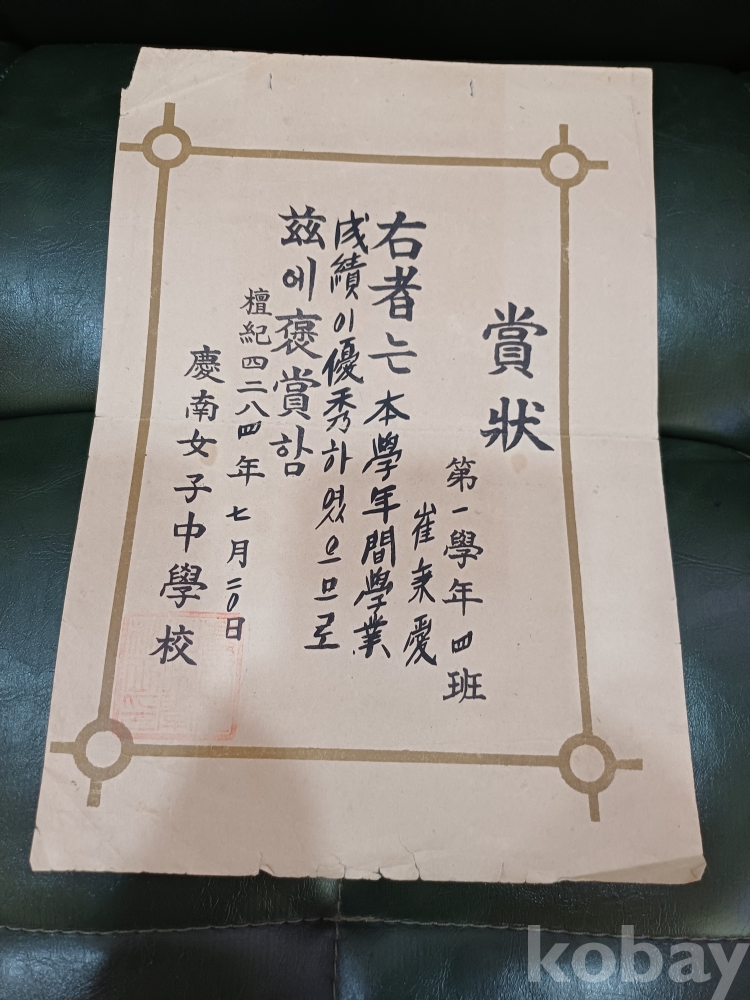 賞狀
第一學年四班
崔秉愛
右者는 本學年間學業
成績이優秀하였으므로
玆에褒賞함
檀紀四二八四年 七月 二〇日
慶南女子中學校
kobay